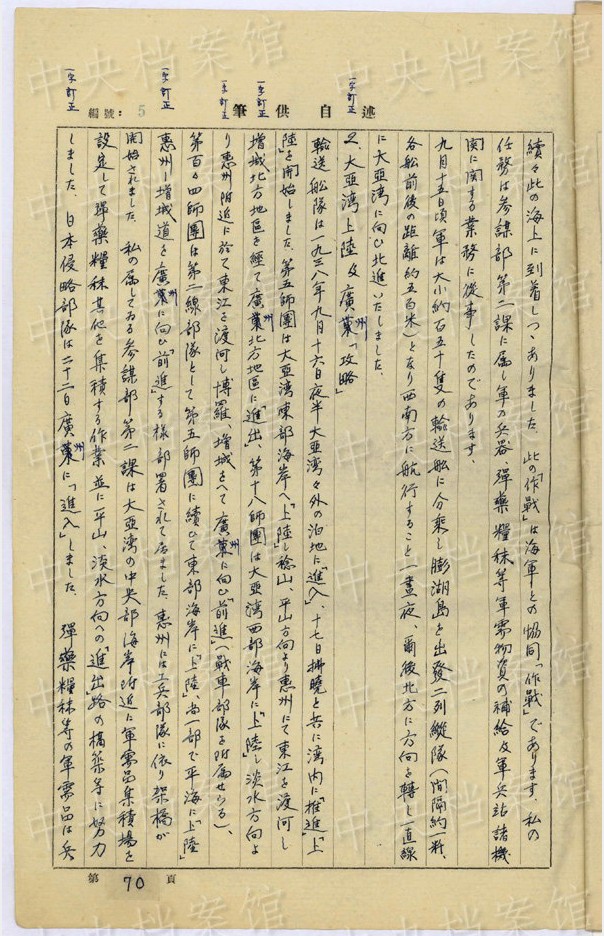 中央档案馆
編號: 5
筆供自述
一字訂正
一字訂正
一字訂正
一字訂正
一字訂正
続々此の海上に到着しつゝありました．此の「作戰」は海軍との協同「作戰」であります．私の
任務は参謀部第二課に属し軍の兵器、彈藥、糧秣等軍需物資の補給及軍兵站諸機
関に関する業務に従事したのであります．
九月十五日頃軍は大小約百五十隻の輸送船に分乗し膨湖島を出發二列縱隊（間隔約一粁、
各船前後の距離約五百米）となり西南方に航行すること一晝夜、爾後北方に方向を轉し一直線
に大亞湾に向ひ北進いたしました．
2、大亞湾上陸及廣州「攻略」
輸送船隊は一九三八年九月十六日夜半大亞湾々外の泊地に「進入」、十七日拂曉と共に湾内に「推進」「上
陸」を開始しました．第五師團は大亞湾東部海岸へ「上陸」し稔山、平山方向より惠州にて東江を渡河し
増城北方地區を經て廣州北方地區に「進出」、第十八師團は大亞湾西部海岸に「上陸」し淡水方向よ
り惠州附近に於て東江を渡河し博羅、増城をへて廣州に向ひ「前進」（戰車部隊を附属せらる）、
第百〇四師團は第二線部隊として第五師團に續ひて東部海岸に「上陸」、尚一部で平海に「上陸」
惠州―増城道を廣州に向ひ「前進」する様部署されて居ました．惠州には工兵部隊に依り架橋が
開始されました．私の属してゐる参謀部第二課は大亞湾の中央部海岸附近に軍需品集積場を
設定して彈藥糧秣其他を集積する作業並に平山、淡水方向への「進」出路の構築等に努力
しました．日本侵略部隊は二十二日廣州に「進入」しました．彈藥糧秣等の軍需品は兵
第 70 頁